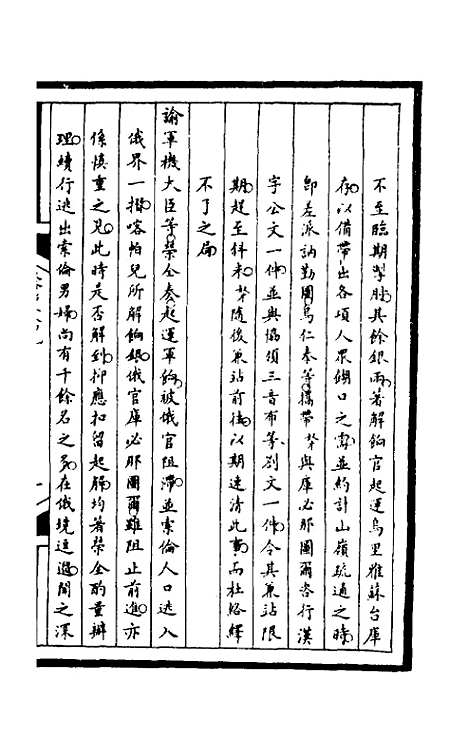 不至臨期掣肘其餘銀兩著解餉官起運烏里雅蘇台庫
存以備帶出各項人眾餬口之需並約計山嶺疏通之時
卽差派訥勤圖烏仁泰等攜帶 與庫必那圖爾咨行漢
字公文一件並與協領三音布等劄文一件令其兼站限
期趕至科布 隨後兼站前往以期速清此事而杜絡繹
不了之局
諭軍機大臣等榮全奏起運軍餉被俄官阻滯並索倫人口逃入
俄界一摺喀帕兒所解餉銀俄官庫必那圖爾雖阻止前進亦
係慎重之見此時是否解到抑應扣留起解均著榮全酌量辦
理續行逃出索倫男婦尚有千餘名之多在俄境逗遛聞之深